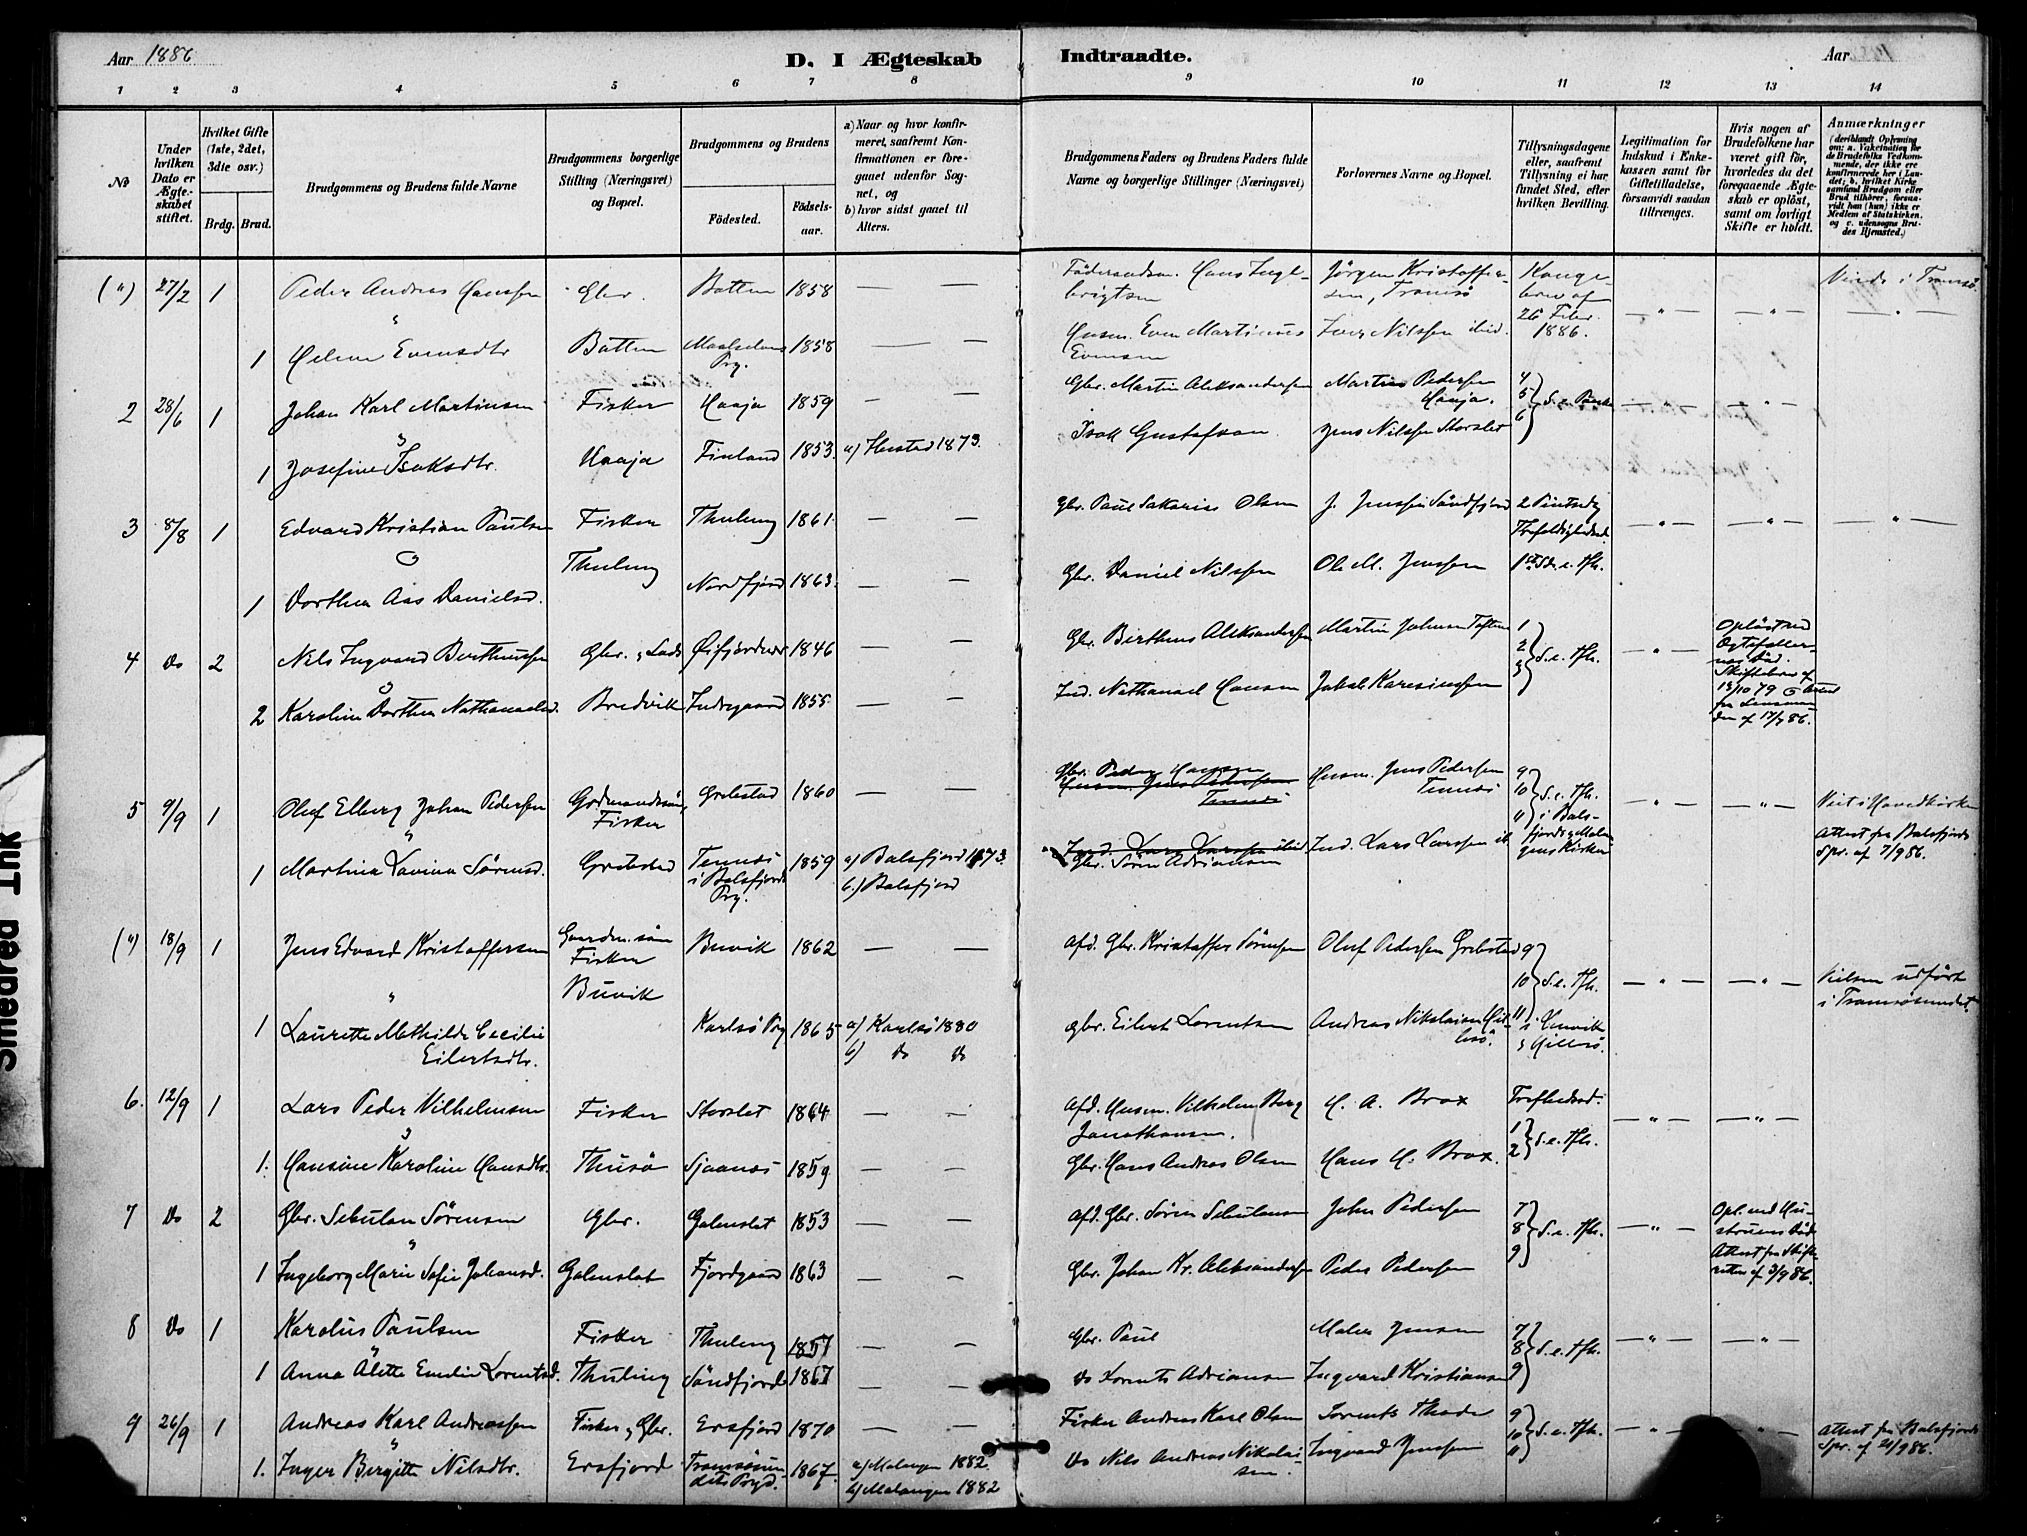 Aar 1886.
D. I Ægteskab Indtraadte.
Aar
1 2 3 4 5 6 7 8 9 10 11 12 13 14
No
Under hvilken Dato er Ægteskabet stiftet.
Hvilket Gifte (1ste, 2det, 3die osv.)
Brdg. Brud.
Brudgommens og Brudens fulde Navne
Brudgommens borgerlige Stilling (Næringsvei) og Bopæl.
Brudgommens og Brudens
Födested.
Födsels-aar.
a) Naar og hvor konfirmeret, saafremt Konfirmationen er foregaaet udenfor Sognet, og
b) hvor sidst gaaet til Alters.
Brudgommens Faders og Brudens Faders fulde Navne og borgerlige Stillinger (Næringsvei)
Forlovernes Navne og Bopæl.
Tillysningsdagene eller, saafremt Tillysning ei har fundet Sted, efter hvilken Bevilling.
Legitimation for Indskud i Enkekassen samt for Giftetilladelse, forsaavidt saadan tiltrænges.
Hvis nogen af Brudefolkene har været gift för, hvorledes da det foregaaende Ægteskab er oplöst, samt om lovligt Skifte er holdt.
Anmærkninger (deriblandt Oplysning om: a. Vakcination for de Brudefolks Vedkommende, der ikke ere konfirmerede her i Landet; b. hvilket Kirkesamfund Brudgom eller Brud tilhörer, forsaavidt han (hun) ikke er Medlem af Statskirken, og c. udensogns Brudes Hjemsted.)
(") 27/2 1 Peder Andreas Hanssen Gbr. Botten 1858 — — Föderaadsm. Hans Ingebrigtsen Jörgen Kristoffersen, Tromsö Kongebrev af 26 Febr. 1886. — " — — " — Viede i Tromsö.
1 Evensdtr Botten Maalselvens Prg. 1858 — — Husm. Even Martinus Evensen Iver Nilssen ibid.
2 28/6 1 Johan Karl Martinsen Fisker Haaja 1859 — — Gbr. Martin Aleksandersen Martin Pedersen Haaja. 4 5 6 } S. e. Paaske — " — — " —
1 Josefine Isaksdtr. Haaja Finland 1853. a) 1873. Isak Gustafson Jens Nilssen Storslet
3 8/8 1 Edvard Kristian Paulsen Fisker Thuleng 1861. — — Gbr. Paul Sakarias Olsen J. Jenssen Söndfjord 2 Pintsedg Trefoldighedssd. — " — — " — — " —
1 Dorthea Aas Danielsd. Thuleng Nordfjord 1863. — — Gbr. Daniel Nilssen Ole M. Jenssen 1st Sd. e. Tfh.
4 Do 2 Nils Ingvard Bertheussen Gbr. 1846 — Gbr. Birtheus Aleksandersen Martin Johnsen 1 2 3 } S. e. Tfh. — " — Oplöst ved Ægtefællernes Död. Skiftebrev af 13/10 79 fra Lensmanden af 17/7 86.
2 Karoline Dorthea Nathanaelsd. Bredvik Indregaard 1855. — — Ind. Nathanael Hansen Jakob
5 9/9 1 Oluf Elberg Johan Pedersen Gaardmandssön, Fisker Grebstad 1860 — — Gbr. Peder Hanssen Husm. Jens Pedersen Tennes Husm. Jens Pedersen Tennes 9 10 11 } S. e. Tfh. i Balsfjords & Malangens Kirker — " — — " — Viet i Hovedkirken
1 Martina Lavina Sörensd. Grebstad Tennes i Balsfjords Prg. 1859 a) Balsfjord 1873. b.) Balsfjord Ind. Lars Larssen ibid Gbr. Sören Adriansen Ind. Lars Larssen ib Attest fra Balsfjords Spr. af 7/9 86.
(") 18/9 1 Jens Edvard Kristoffersen Gaardm. sön Fisker Buvik Buvik 1862 — — Afd. Gbr. Kristoffer Sörensen Oluf Pedersen Grebstad 9 10 11 } S. e. Tfh. — " — — " — Vielsen udfört i Tromsösundet.
1 Laurette Mathilde Cecilie Eilertsdtr. Karlsö Prg 1865 a) Karlsö 1880 b) Do Do Gbr. Eilert Lorentsen Andreas Nikolaisen Hillesö. i Henvik & Hillesö.
6. 12/9 1 Lars Peder Vilhelmsen Fisker Storslet 1864 — — Afd. Husm. Vilhelm Berg Jonathansen. H. A. Brox Trefhedssd. 1 2 } S. e. Tfh. — " — — " —
1. Hansine Karoline Hansdtr. Thusö Sjaanes 1859 — — Gbr. Hans Andreas Olsen Hans H. Brox.
7 Do 2 Gbr. Sebulon Sörensen Gbr. Galnslet 1853 — — Afd. Gbr. Sören Sebulonsen John Pedersen 7 8 9 } S. e. Tfh. — " — Opl. ved Hustruens Död Attest fra Skifteretten af 3/9 86.
1 Ingeborg Marie Sofie Johansd. Galnslet Fjordgaard 1863 — — Gbr. Johan Kr. Aleksandersen Peder Pedersen
8 Do 1 Karolus Paulsen Fisker Thuleng 1857 — — Gbr. Paul Jensen 7 8 9 } S. e. Tfh. — " — — " —
1 Anna Alette Emelie Lorentsd. Thuleng Söndfjord 1867 — — Do Lorents Adriansen Ingvard Kristiansen
9 26/9 1 Andreas Karl Andreassen Fisker, Gbr. Ersfjord 1870 — — Fisker Andreas Karl Olsen Lorents 9 10 11 } S. e. Tfh. — " — — " — Attest fra Balsfjords Spr. af 21/9 86.
1. Inger Birgitte Nilsdtr. Ersfjord Tromsösundets Prgd. 1867. a) Malangen 1882. b) Malangen 1882 Do Nils Andreas Nikolaisen. Ingvard Jenssen
Smedred Ink